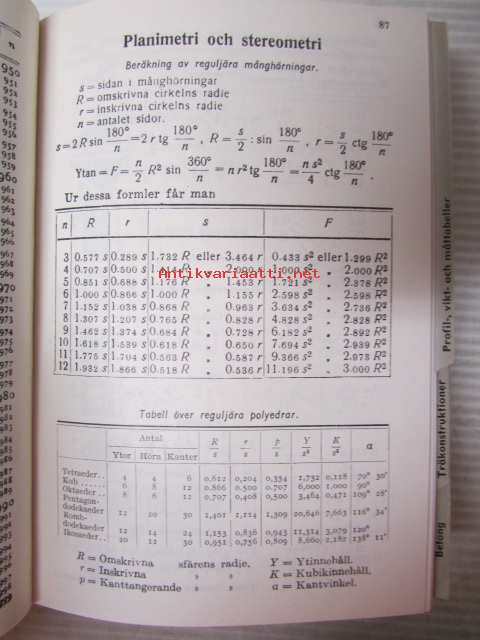 87
Planimetri och stereometri
Beräkning av reguljära månghörningar.
s = sidan i månghörningar
R = omskrivna cirkelns radie
r = inskrivna cirkelns radie
n = antalet sidor.
s = 2 R sin 180°/n = 2 r tg 180°/n, R = s/2 : sin 180°/n, r = s/2 ctg 180°/n.
Ytan = F = n/2 R² sin 360°/n = n r² tg 180°/n = n s²/4 ctg 180°/n.
Ur dessa formler får man
n R r s F
3 0.577 s 0.289 s 1.732 R eller 3.464 r 0.433 s² eller 1.299 R²
4 0.707 s 0.500 s 1.414 R „ 2.000 r 1.000 s² „ 2.000 R²
Antikvariaatti.net
5 0.851 s 0.688 s 1.176 R „ 1.453 r 1.721 s² „ 2.378 R²
6 1.000 s 0.866 s 1.000 R „ 1.155 r 2.598 s² „ 2.598 R²
7 1.152 s 1.038 s 0.868 R „ 0.963 r 3.634 s² „ 2.736 R²
8 1.307 s 1.207 s 0.765 R „ 0.828 r 4.828 s² „ 2.828 R²
9 1.462 s 1.374 s 0.684 R „ 0.728 r 6.182 s² „ 2.892 R²
10 1.618 s 1.539 s 0.618 R „ 0.650 r 7.694 s² „ 2.939 R²
11 1.775 s 1.704 s 0.563 R „ 0.587 r 9.366 s² „ 2.973 R²
12 1.932 s 1.866 s 0.518 R „ 0.536 r 11.196 s² „ 3.000 R²
Tabell över reguljära polyedrar.
Antal R/s r/s p/s Y/s² K/s³ α
Ytor Hörn Kanter
Tetraeder.. 4 4 6 0,612 0,204 0,354 1,732 0,118 70° 30'
Kub 6 8 12 0,866 0,500 0,707 6,000 1,000 90°
Oktaeder.. 8 6 12 0,707 0,408 0,500 3,464 0,471 109° 28'
Pentagon-
dodekaeder 12 20 30 1,401 1,114 1,309 20,646 7,663 116° 34'
Romb-
dodekaeder 12 14 24 1,153 0,816 0,943 11,314 3,079 120°
Ikosaeder.. 20 12 30 0,951 0,756 0,809 8,660 2,182 138° 12'
R = Omskrivna sfärens radie. Y = Ytinnehåll.
r = Inskrivna „ „ K = Kubikinnehåll.
p = Kanttangerande „ „ α = Kantvinkel.
Profil-, vikt- och måttabeller
Träkonstruktioner
Betong